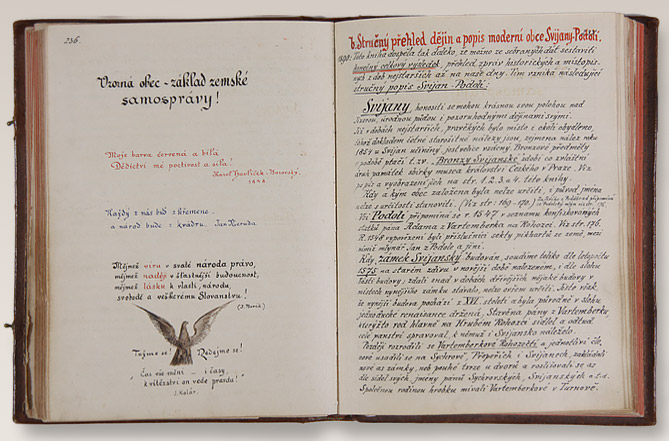 236.
Vzorná obec - základ zemské
samosprávy!
Moje barva červená a bílá
Dědictví mé poctivost a síla!
Karel Havlíček-Borovský.
Kajžý z nás buď z křemene
a národ bude z kvádru. Jan Neruda
Mějmež víru v svaté národa právo,
mějmež naději v šťastnější budoucnost,
mějmež lásku k vlasti, národu,
svobodě a veškerému Slovanstvu!
Tužme se! Redejme se!
Čas vše mění - i časy,
k vítězství on vede pravdu!
J. Kolár.
b. Stručný přehled dějin a popis moderní obce Svijany-Podolí.
Tato kniha dospěla tak daleko, že možno ze sebraných dat sestaviti
konečný celkový výsledek, přehled zpráv historických a místopis-
ných z dob nejstarších až na naše dny. Tím vzniká následující
stručný popis Svijan-Podolí:
Svijany, honositi se mohou krásnou svou polohou nad
Jizerou, úrodnou půdou i pozoruhodnými dějinami svými.
Již v dobách nejstarších, pravěkých bylo místo i okolí obydleno,
čehož dokladem četné starožitné nálezy jsou, zejména nález roku
1854 u Svijan učiněný, jest velice vzácný. Bronzové předměty
v podobě ptačí t. zv. Bronzy Svijanské zdobí co zvláštní
druk památek sbírky musea království Českého v Praze. Viz
popis a vyobrazení jich na str. 1. 2. 3. a 4. této knihy.
Kdy a kým obec založena byla nelze určiti, i původ jména
nelze s určitostí stanoviti. (Viz str. 169-170.)
Ves Podolí připomíná se r. 1547 v seznamu konfiskovaných
statků pána Adama z Vartemberka na Rohozci. Viz str. 176.
R. 1548 vypovězeni byli příslušníci sekty pikhartů ze země, mezi
nimiž mlynář Jan z Podolí a jiní.
Kdy zámek Svijanský budován, soudíme toliko dle letopočtu
1578 na starém zdivu v novější době nalezeném, i dle slohu
části budovy; zdali snad v dobách dřívějších nějaké budovy v
místech nynějšího zámku stávalo, nelze ovšem určiti. Jisto však,
že nynější budova pochází z XVI. století a byla původně v slohu
jednoduché renaisance držená, Stavěna pány z Vartemberku,
kterýžto rod hlavně na Hrubém Rohozci sídlel a odtud
celé panství spravoval, k němuž i Svijansko náleželo.
Později rozrodili se Vartemberkové Rohozečtí a jednotliví čle-
nové usadili se na Sychrově, Přepeřích i Svijanech, zakládali
nové as zámky, neb pouhé tvrze u dvorů a rozlišovali se as
dle sídel svých, jmény pánů Sychrovských, Svijanských a t. d.
Společnou rodinou hrobku mívali Vartemberkové v Turnově.